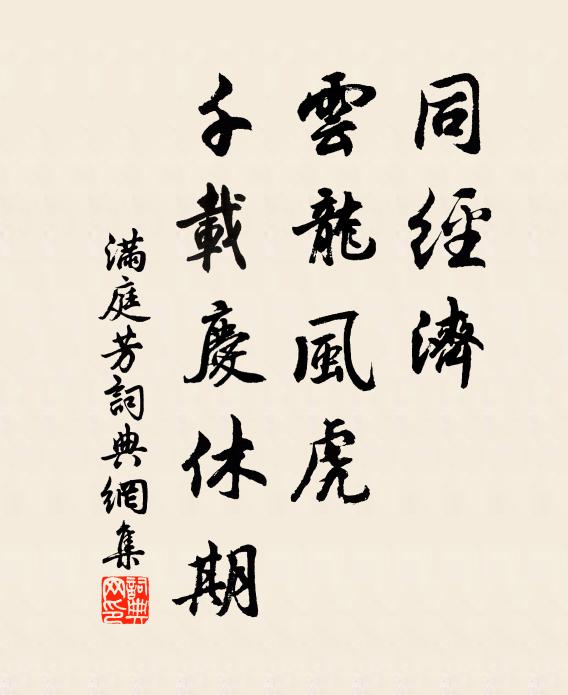 同經濟
雲龍風虎
千載慶休期
滿庭芳詞典網集
詞典网印